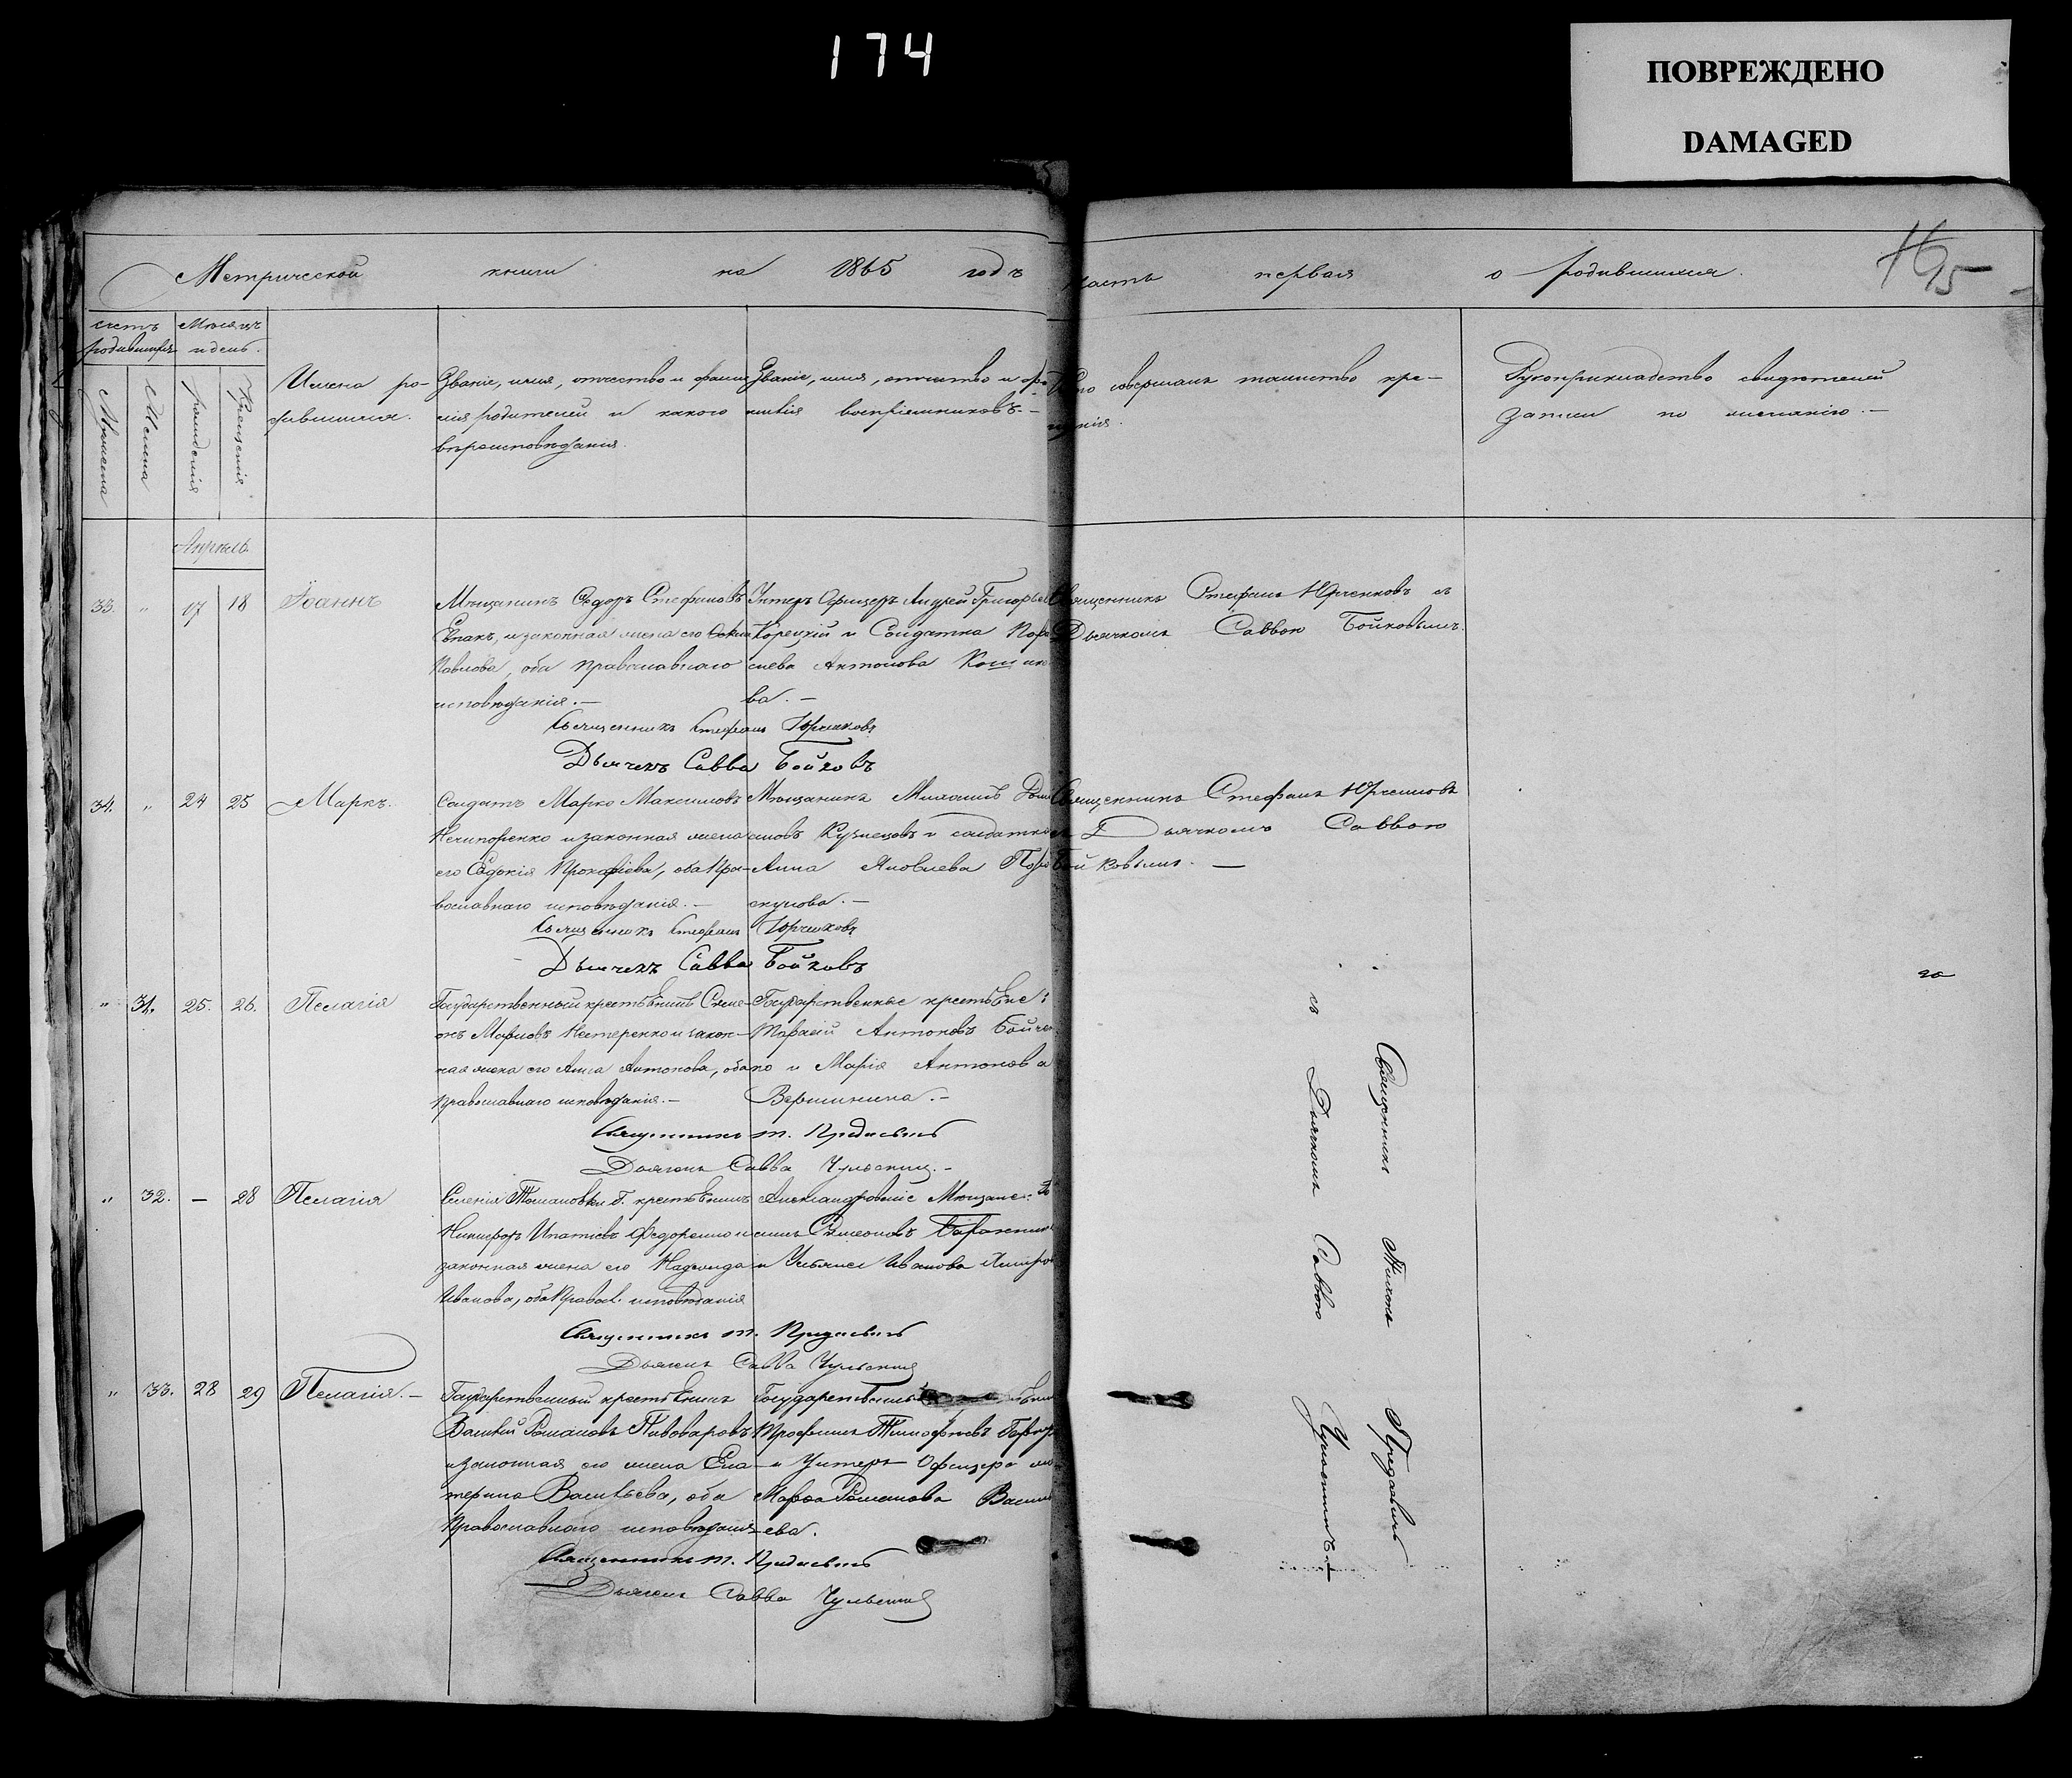 174
ПОВРЕЖДЕНО
DAMAGED
Метрической книги на 1865 годъ часть первая о родившихся.
счетъ родившихся
Мужеска
Женска
Мѣсяцъ и день.
рожденія
Крещенія
Имена родившихся.
Званіе, имя, отчество и фамилія родителей и какого вѣроисповѣданія.
Званіе, имя, отчество и фамилія воспріемниковъ.—
Кто совершалъ таинство крещенія.
Рукоприкладство свидѣтелей
записи по желанію.—
Апрѣль
33. " 17 18 Іоаннъ
Мѣщанинъ Ѳедоръ Стефановъ
и законная жена его
Павлова, оба православнаго
исповѣданія.—
Унтеръ Офицеръ Андрей Григорьевъ
Корецкій и Солдатка
Антонова
ва.—
Священникъ Стефанъ Юрченковъ съ
Дьячкомъ Саввою Бойковымъ.
Священникъ Стефанъ Юрченковъ
Дьячекъ Савва Бойковъ
34. " 24 25 Маркъ.
Солдатъ Марко Максимовъ
Нечипоренко и законная жена
его Евдокія Прокофіева, обаПра-
вославнаго исповѣданія.—
Мѣщанинъ
Кузнецовъ и солдатка
Анна Яковлева
скунова.—
Священникъ Стефанъ Юрченковъ
съ Дьячкомъ Саввою
Бойковымъ.—
Священникъ Стефанъ Юрченковъ
Дьячекъ Савва Бойковъ
" 31. 25. 26. Пелагія
Государственный крестьянинъ Симе-
онъ Марковъ Нестеренко и закон-
ная жена его Анна Антонова, оба
Православнаго исповѣданія.—
Государственные крестьяне:
Тарасій Антоновъ Бойчен
ко и Марія Антонова
Вершинина.—
Священникъ Т. Предаевичъ
Дьячекъ Савва
" 32. — 28 Пелагія
Селенія Томановки Г. крестьянинъ
Никифоръ Ипатіевъ Федоренко и
законная жена его Надежда
Иванова, оба Правосл. исповѣданія
Александровскіе Мѣщане:
Симеоновъ
и Ульяна Иванова
Священникъ Т. Предаевичъ
Дьячекъ Савва
" 33. 28 29 Пелагія.—
Государственный крестьянинъ
Василій Романовъ Пивоваровъ
и законная его жена Ека-
терина Васильева, оба
Православнаго исповѣданія
Государственный
Трофимъ Тимофѣевъ
и Унтеръ Офицера
Марѳа Романова Василь
ева.
Священникъ Т. Предаевичъ
Дьячекъ Савва
Священникъ Тихонъ Предаевичъ
съ Дьячкомъ Саввою